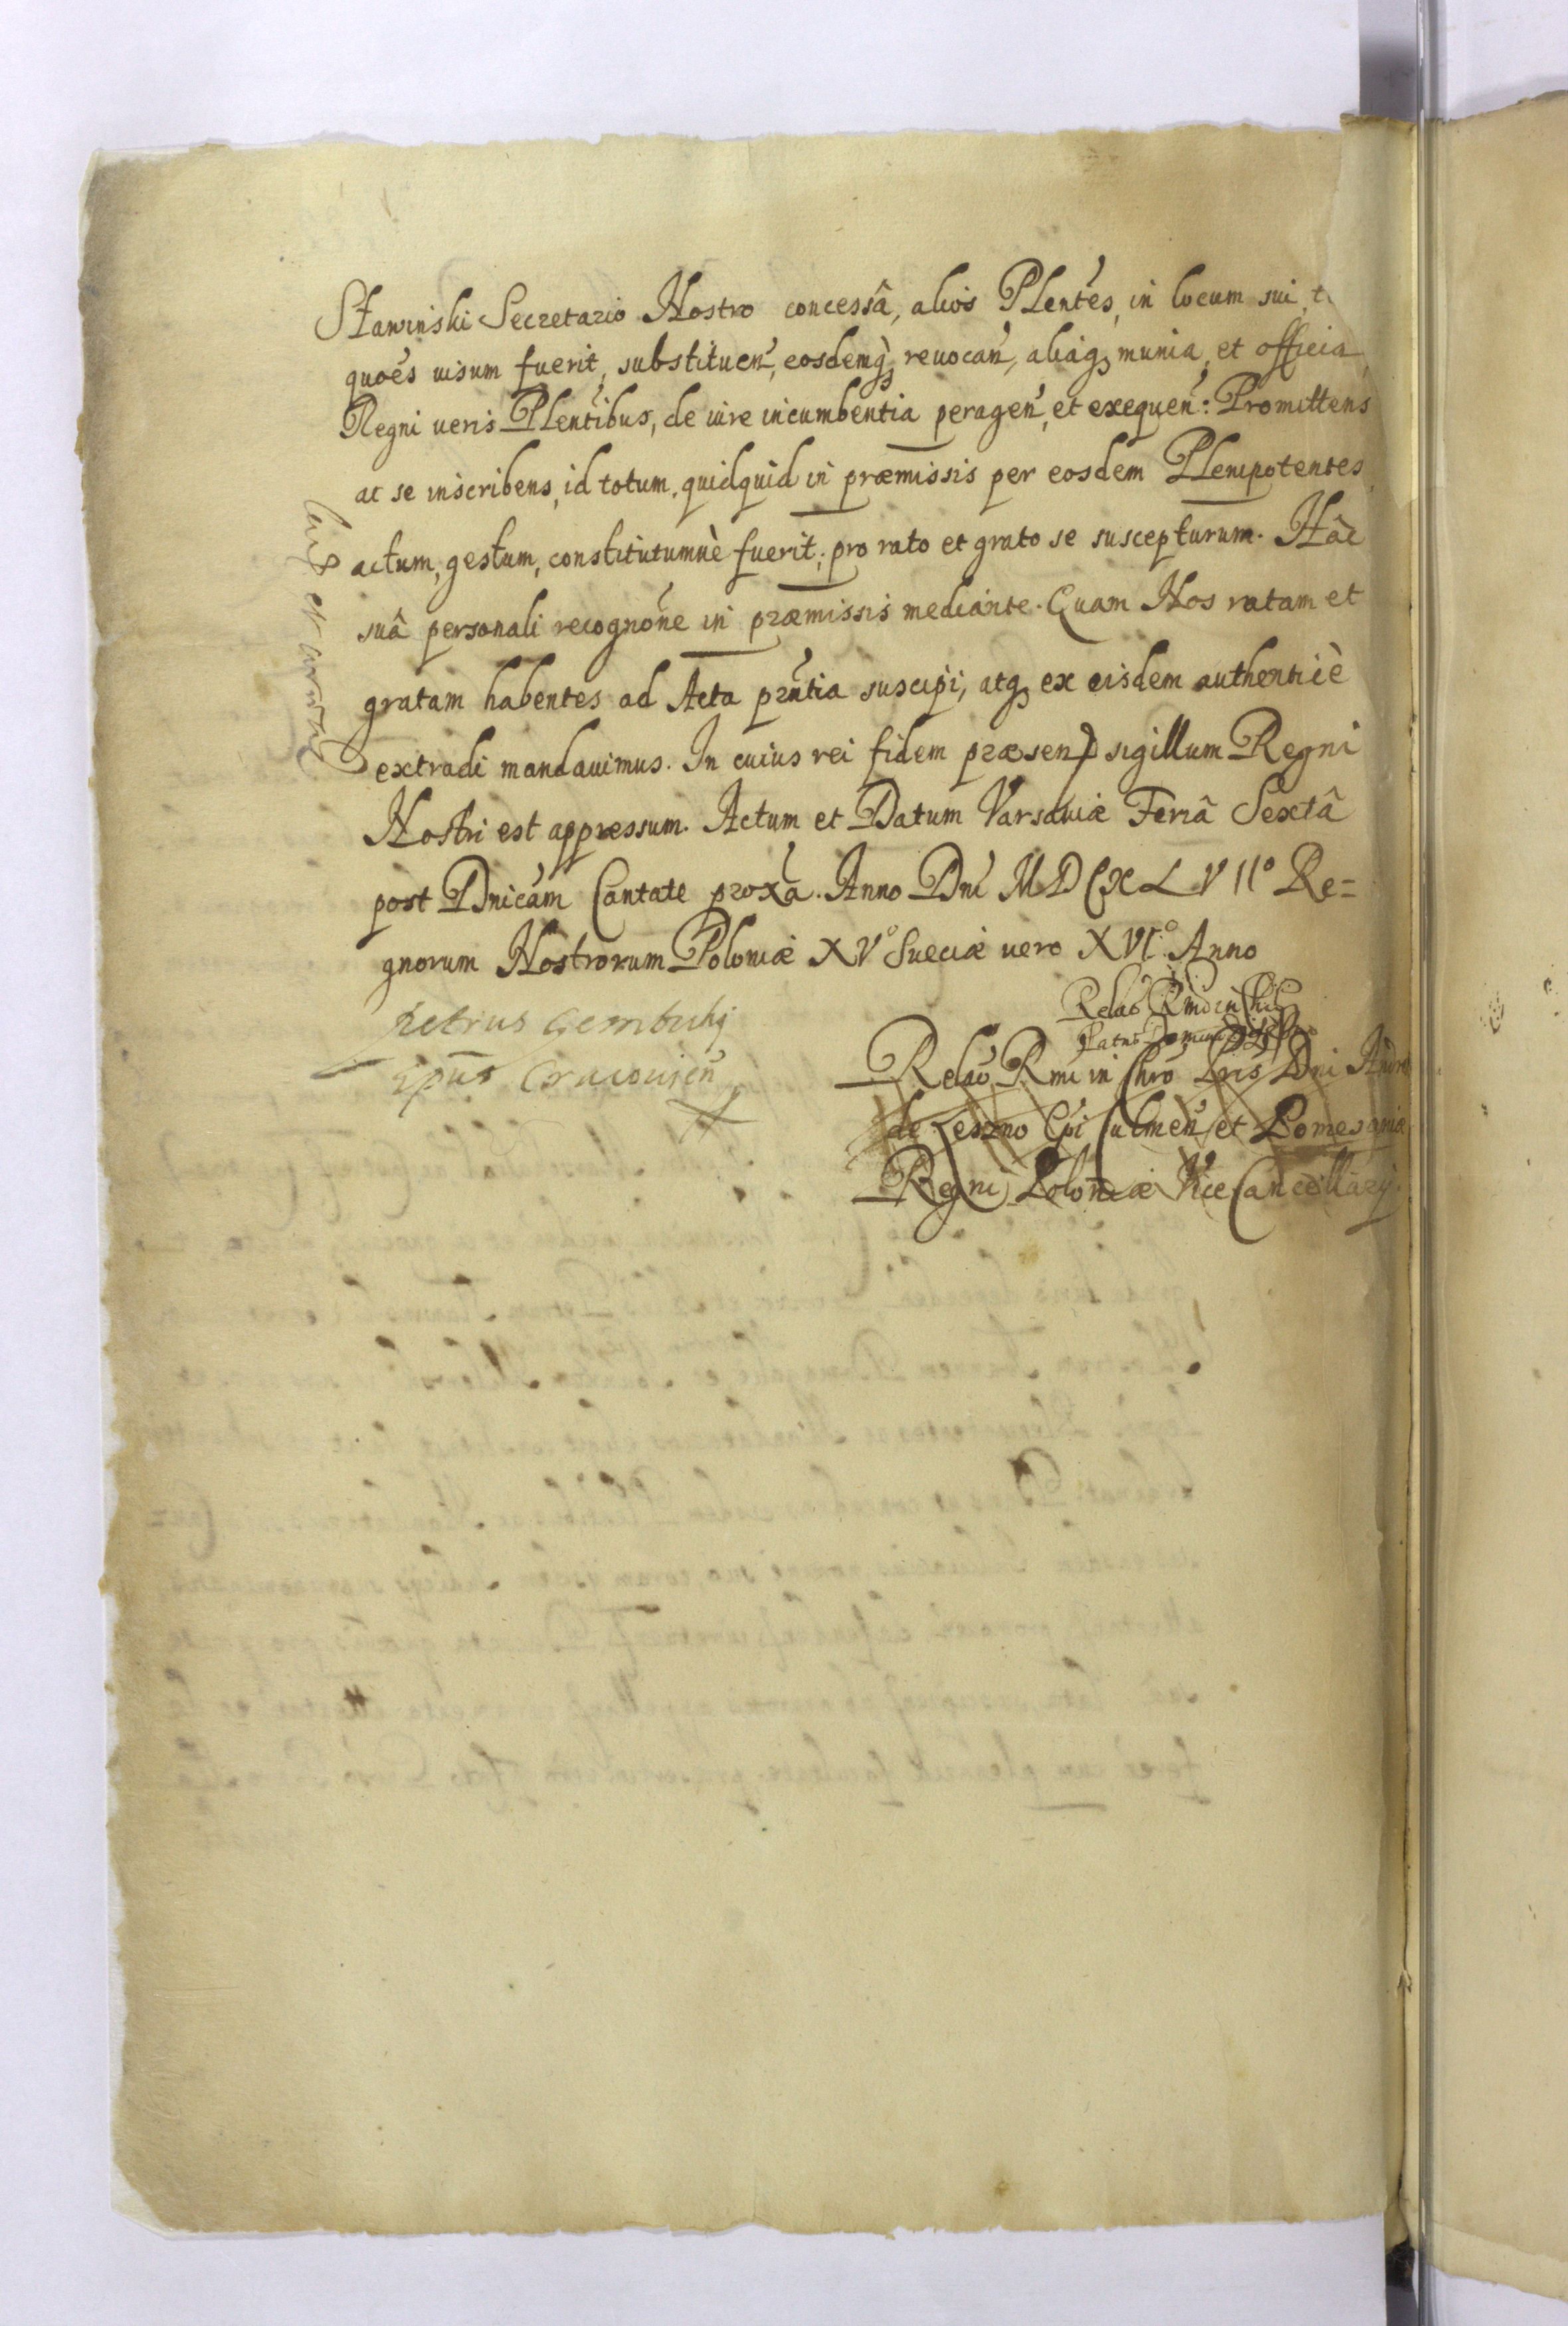 Stawinski Secretario Nostro concessâ, alios Plen̄tes, in locum sui, t
quoēs uisum fuerit, substituen̄, eosdemq̨ reuocan̄, aliaq̨ munia, et officia,
Regni ueris Plen̄tibus, de iure incumbentia peragen̄, et exequen̄: Promittens
ac se inscribens, id totum, quidquid in præmissis per eosdem Plenipotentes,
actum, gestum, constitutumuè fuerit, pro rato et grato se suscepturum. Hâc
suâ personali recognōne in præmissis mediante. Quam Nos ratam et
gratam habentes ad Acta pr̄ntia suscipi, atq̨ ex eisdem authenticè
extradi mandauimus. In cuius rei fidem præsen̄ sigillum Regni
Nostri est appressum. Actum et Datum Varsauiæ Feriâ Sextâ
post Dnicam Cantate proxā. Anno Dnī MDCXLVIIº Re=
gnorum Nostrorum Poloniæ XVº Sueciæ uero XVIº. Anno
Petrus Gembicki
Ep̄us Cracouien̄
Relaō Rmi in Chro
Patris Domini
Relaō Rmi in Chrō Pris Dni Andr
de Leszno Epi Culmen̄ et Pomesaniæ
Regni Poloniæ Vice Cancellarij